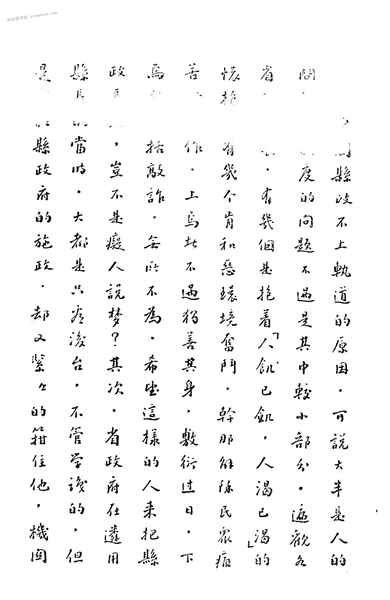 縣政不上軌道的原因。可說大半是人的
問 度的问題不過是其中較小部分。遍観各
省 。有幾個是抱着「人飢已飢。人渴已渴」的
懷抱 有幾个肯和惡環境奮鬥。幹那解除民眾痛
善 作。上焉者不過獨善其身。敷衍过日。下
焉 括敲詐。無所不為。希望這樣的人来把縣
政 。豈不是癡人說梦？其次。省政府在遴用
縣長 當時。大都是只看後台。不管学識的。但
是 縣政府的施政。却又緊々的箝住他。機関